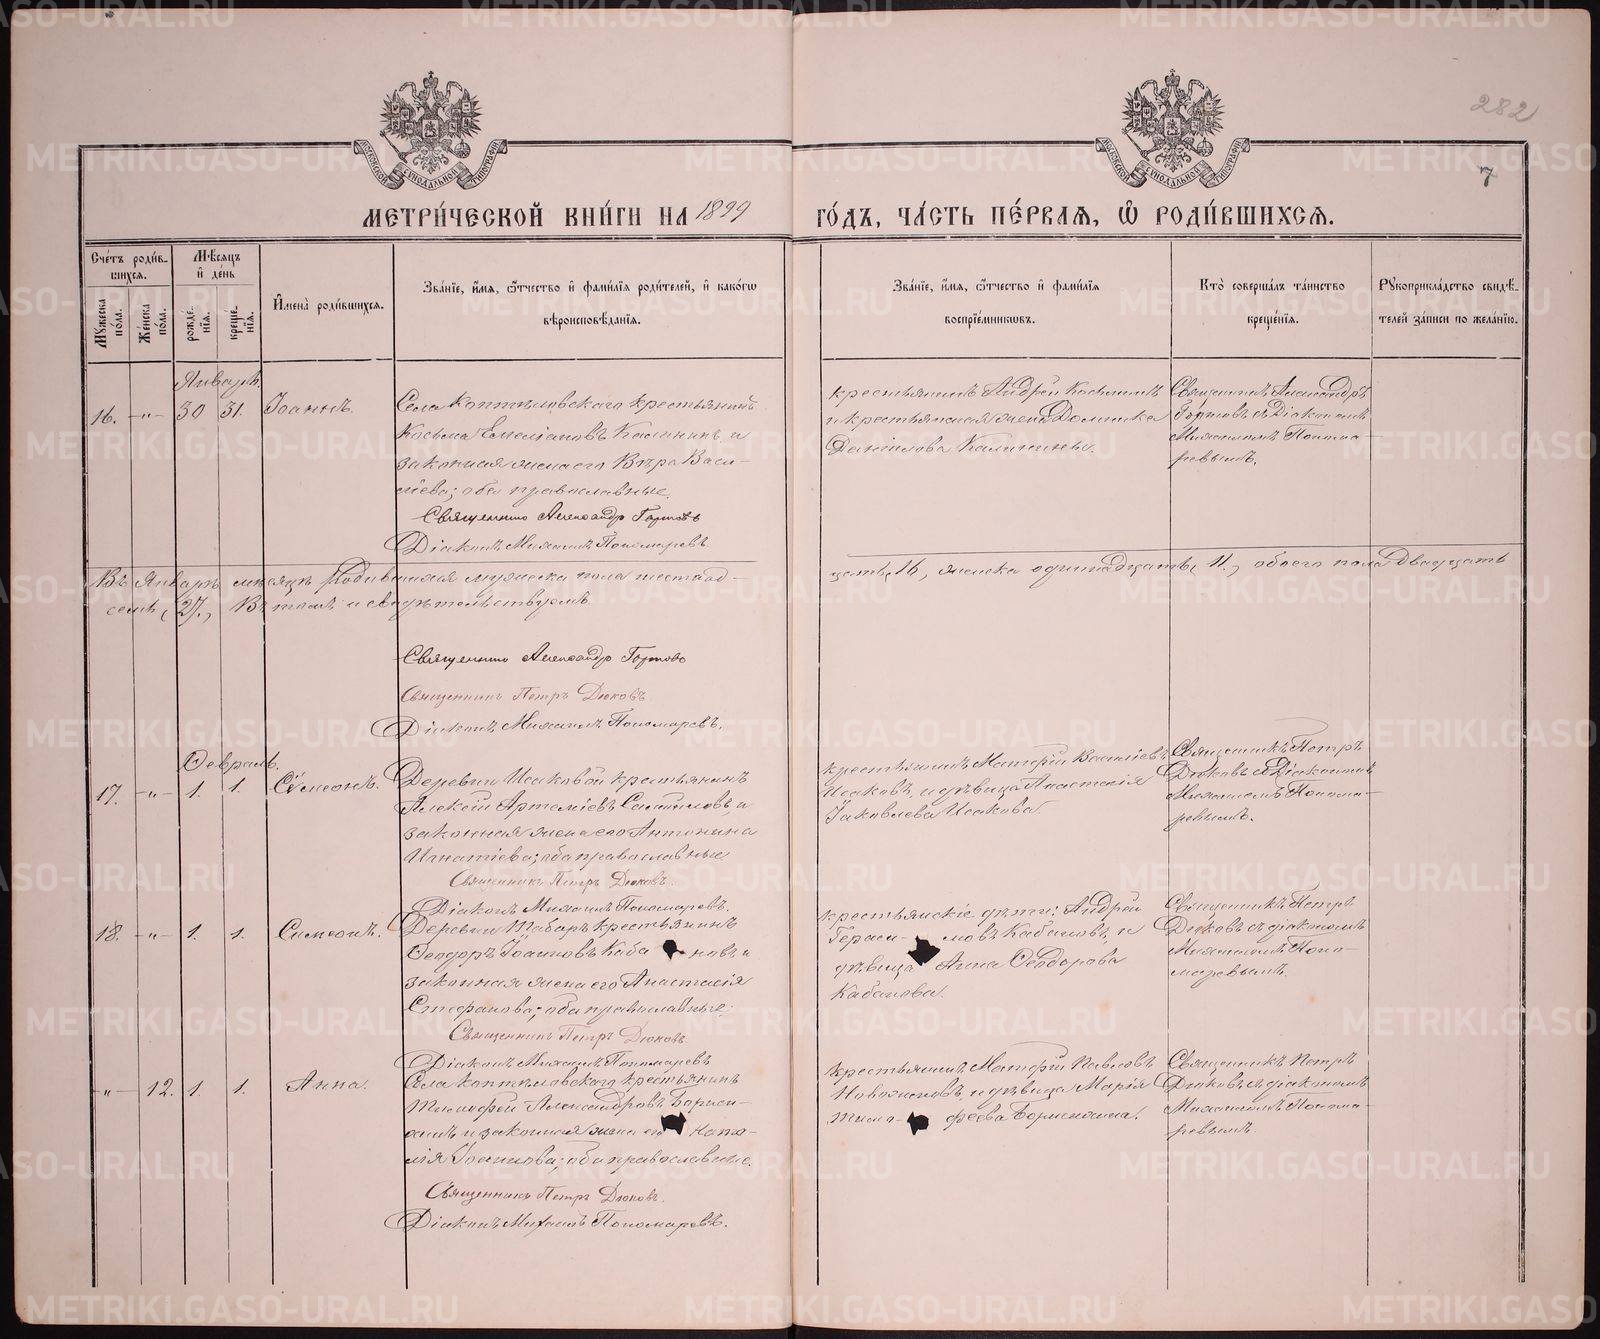 282
7
МОСКОВСКОЙ СѴНОДАЛЬНОЙ ТИПОГРАФІИ
МОСКОВСКОЙ СѴНОДАЛЬНОЙ ТИПОГРАФІИ
МЕТРИ́ЧЕСКОЙ КНИ́ГИ НА 1899 ГО́ДЪ, ЧА́СТЬ ПЕ́РВАѦ, Ѡ҆ РОДИ́ВШИХСѦ.
Сче́тъ роди́в-
шихсѧ.
Мꙋ́жеска по́ла.
Же́нска по́ла.
Мѣ́сѧцъ и҆ де́нь
рожде́-нїѧ.
креще́-нїѧ.
И҆мена̀ роди́вшихсѧ.
Зва́нїе, и҆́мѧ, ѻ҆́тчество и҆ фами́лїѧ роди́телей, и҆ како́гѡ
вѣроисповѣ́данїѧ.
Зва́нїе, и҆́мѧ, ѻ҆́тчество и҆ фами́лїѧ
воспрїе́мникѡвъ.
Кто̀ соверша́лъ та́инство
креще́нїѧ.
Рꙋкоприкла́дство свидѣ́-
телей за́писи по жела́нїю.
Январь.
16. -„- 30 31. Іоаннъ.
Села Коптѣловскаго крестьянинъ
Косьма Емеліановъ Калининъ, и
законная жена его Вѣра Васи-
ліева; оба православные.
Священникъ Александръ Гортовъ
Діаконъ Михаилъ Пономаревъ
крестьянинъ Андрей Косьминъ
и крестьянская жена Домника
Данилова Калинины.
Священникъ Александръ
Гортовъ съ Діакономъ
Михаиломъ Понома-
ревымъ.
Въ Январѣ мѣсяцѣ родившихся мужеска пола шестнад-
цать, 16, женска одиннадцать, 11, обоего пола двадцать
семь, 27., Въ томъ и свидѣтельствуемъ.
Священникъ Александръ Гортовъ
Священникъ Петръ Дюковъ
Діаконъ Михаилъ Пономаревъ.
Февраль.
17. -„- 1. 1. Сѵмеонъ.
Деревни Исаковой крестьянинъ
Алексій Артеміевъ Самойловъ, и
законная жена его Антонина
Игнатіева; оба православные
Священникъ Петръ Дюковъ.
Діаконъ Михаилъ Пономаревъ.
крестьянинъ Матфей Василіевъ
Исаковъ, и дѣвица Анастасія
Іаковлева Исакова.
Священникъ Петръ
Дюковъ съ Діакономъ
Михаиломъ Понома-
ревымъ.
18. -„- 1. 1. Симеонъ.
Деревни Таборъ крестьянинъ
Ѳеодоръ Іоанновъ Каба новъ и
законная жена его Анастасія
Стефанова; оба православные.
Священникъ Петръ Дюковъ
Діаконъ Михаилъ Пономаревъ
крестьянскіе дѣти: Андрей
Гераси- мовъ Кабановъ, и
дѣвица Анна Ѳеодорова
Кабанова.
Священникъ Петръ
Дюковъ съ діакономъ
Михаиломъ Поно-
маревымъ.
-„- 12. 1. 1. Анна.
Села Коптѣловскаго крестьянинъ
Тимофей Александровъ Бориси-
хинъ и законная жена его Ната-
лія Іоаннова; оба православные.
Священникъ Петръ Дюковъ.
Діаконъ Михаилъ Пономаревъ.
крестьянинъ Матфей Павловъ
и дѣвица Марія
Тимо- феева Борисихина.
Священникъ Петръ
Дюковъ съ діакономъ
Михаиломъ Понома-
ревымъ.
METRIKI.GASO-URAL.RU